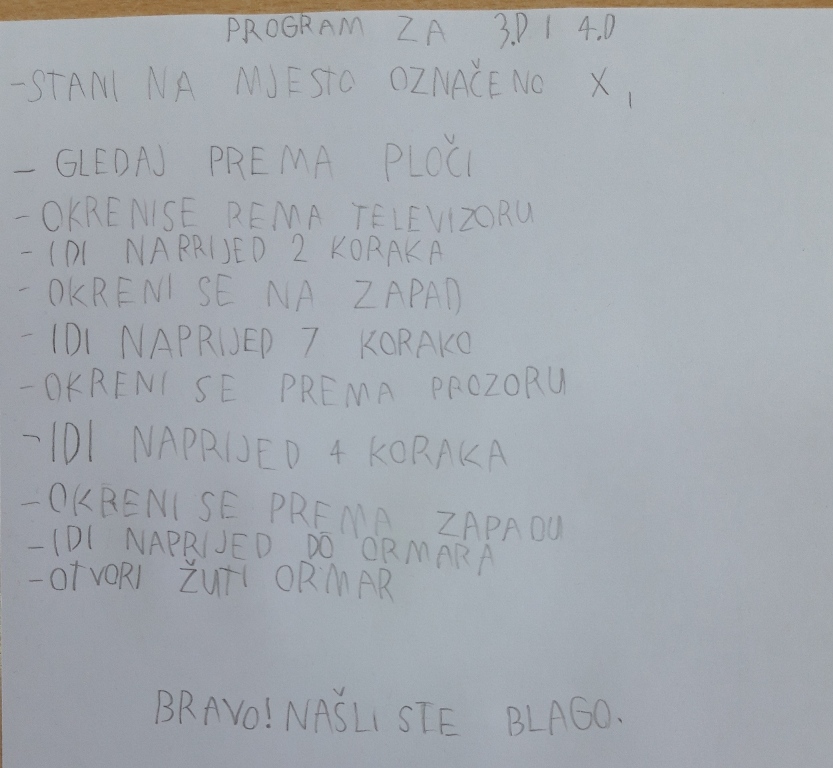 PROGRAM ZA 3.D I 4.D
-STANI NA MJESTO OZNAČENO X,
- GLEDAJ PREMA PLOČI
- OKRENI SE REMA TELEVIZORU
- IDI NAPRIJED 2 KORAKA
- OKRENI SE NA ZAPAD
- IDI NAPRIJED 7 KORAKO
- OKRENI SE PREMA PROZORU
- IDI NAPRIJED 4 KORAKA
- OKRENI SE PREMA ZAPADU
- IDI NAPRIJED DO ORMARA
- OTVORI ŽUTI ORMAR
BRAVO! NAŠLI STE BLAGO.